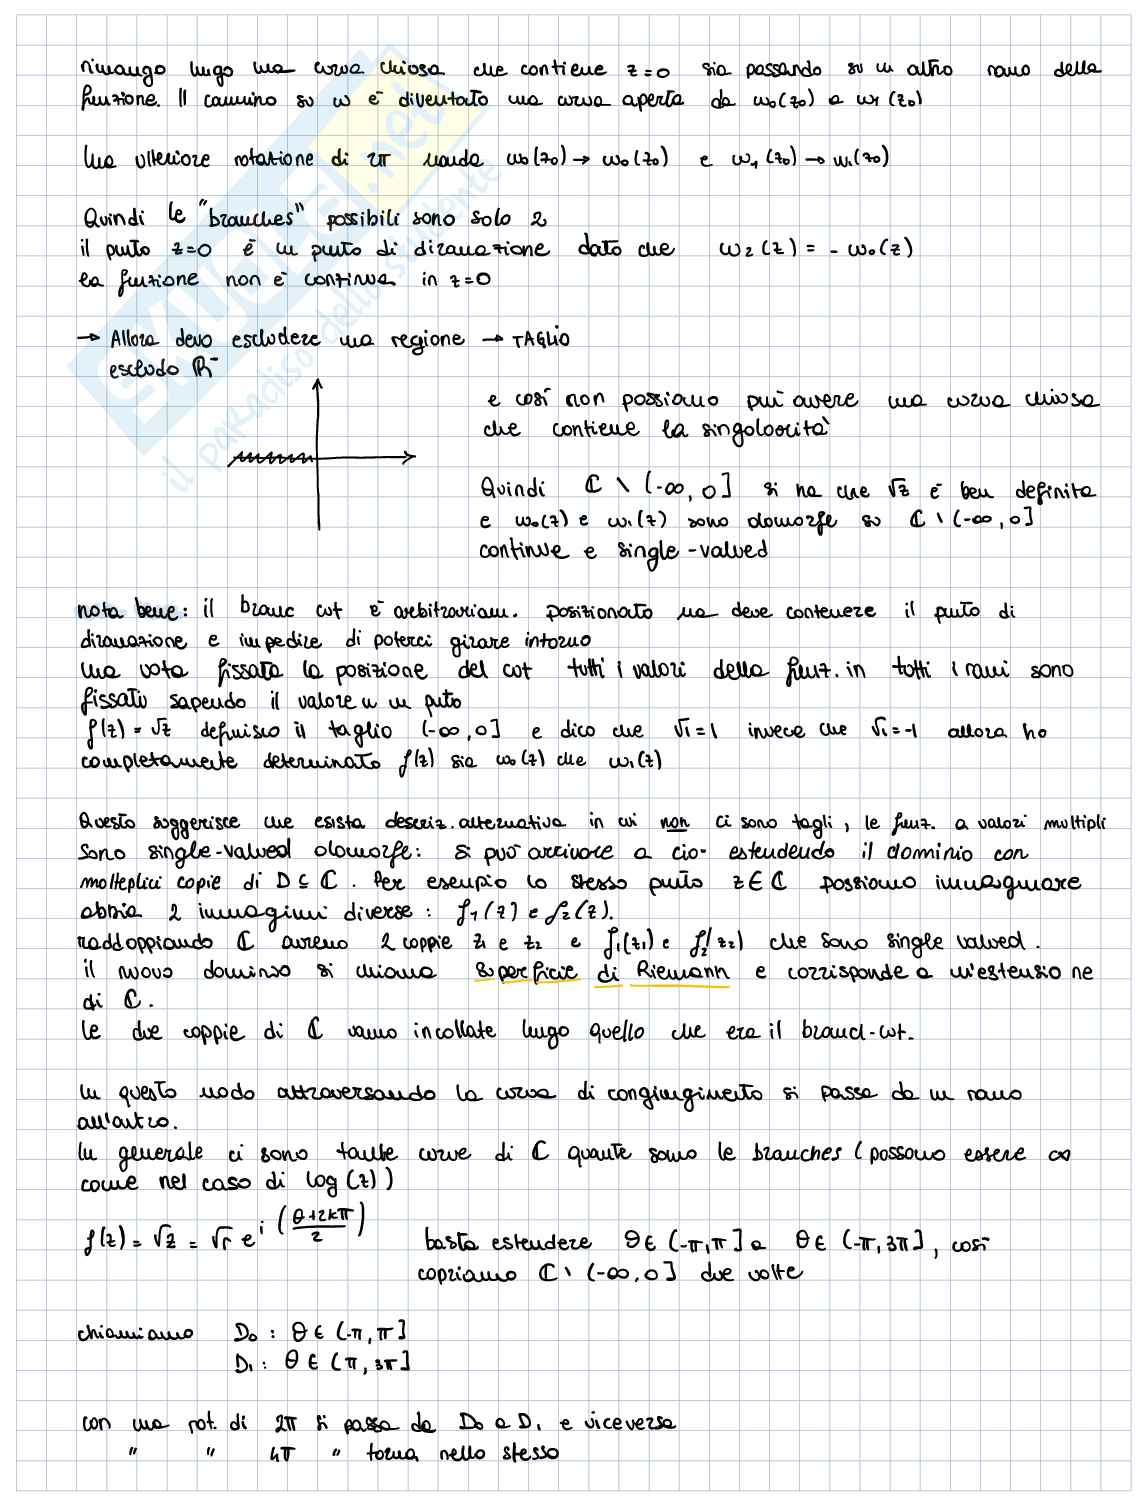 rimango lungo una curva chiusa che contiene z=0 sia passando su un altro ramo della
funzione. Il cammino su w è diventato una curva aperta da w₀(z₀) a w₁(z₀)
Una ulteriore rotazione di 2π manda w₀(z₀) → w₀(z₀) e w₁(z₀) → w₁(z₀)
Quindi le "branches" possibili sono solo 2
il punto z=0 è un punto di diramazione dato che w₂(z) = - w₀(z)
la funzione non è continua in z=0
→ Allora devo escludere una regione → TAGLIO
escludo ℝ⁻
e così non possiamo più avere una curva chiusa
che contiene la singolarità
Quindi ℂ \ (-∞, 0] si ha che √z è ben definita
e w₀(z) e w₁(z) sono olomorfe su ℂ \ (-∞, 0]
continue e single-valued
nota bene: il branc cut è arbitrariam. posizionato ma deve contenere il punto di
diramazione e impedire di poterci girare intorno
Una vota fissata la posizione del cut tutti i valori della funz. in tutti i rami sono
fissati sapendo il valore in un punto
f(z) = √z definisco il taglio (-∞, 0] e dico che √1 = 1 invece che √1 = -1 allora ho
completamente determinato f(z) sia w₀(z) che w₁(z)
Questo suggerisce che esista descriz. alternativa in cui non ci sono tagli, le funz. a valori multipli
sono single-valued olomorfe: si può arrivare a ciò estendendo il dominio con
molteplici copie di D ⊆ ℂ. Per esempio lo stesso punto z∈ℂ possiamo immaginare
abbia 2 immagini diverse: f₁(z) e f₂(z).
raddoppiando ℂ avremo 2 coppie z₁ e z₂ e f₁(z₁) e f₂(z₂) che sono single valued.
il nuovo dominio si chiama superficie di Riemann e corrisponde a un'estensione
di ℂ.
le due coppie di ℂ vanno incollate lungo quello che era il branch-cut.
In questo modo attraversando la curva di congiungimento si passa da un ramo
all'altro.
In generale ci sono tante curve di ℂ quante sono le branches (possono essere ∞
come nel caso di log(z))
f(z) = √z = √r e^{i((θ+2kπ)/2)} basta estendere θ∈(-π,π] a θ∈(-π,3π], così
copriamo ℂ \ (-∞, 0] due volte
chiamiamo D₀ : θ ∈ (-π, π]
D₁ : θ ∈ (π, 3π]
con una rot. di 2π si passa da D₀ a D₁ e viceversa
" " 4π " torna nello stesso
SKUOLA.net
il paradiso dello studente